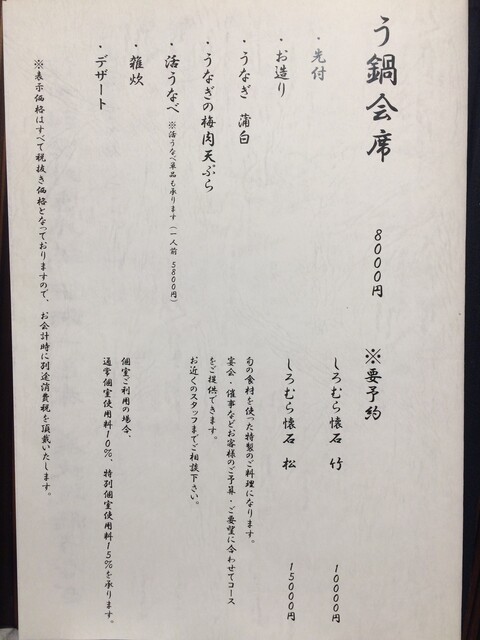 う鍋会席　8000円　※要予約
・先付
・お造り
・うなぎ　蒲白
・うなぎの梅肉天ぷら
・活うなべ　※活うなべ単品も承ります（一人前　5800円）
・雑炊
・デザート
しろむら懐石　竹　10000円
しろむら懐石　松　15000円
旬の食材を使った特製のご料理になります。
宴会・催事などお客様のご予算・ご要望に合わせてコース
をご提供できます。
お近くのスタッフまでご相談下さい。
個室ご利用の場合、
通常個室使用料10％、特別個室使用料15％を承ります。
※表示価格はすべて税抜き価格となっておりますので、お会計時に別途消費税を頂戴いたします。